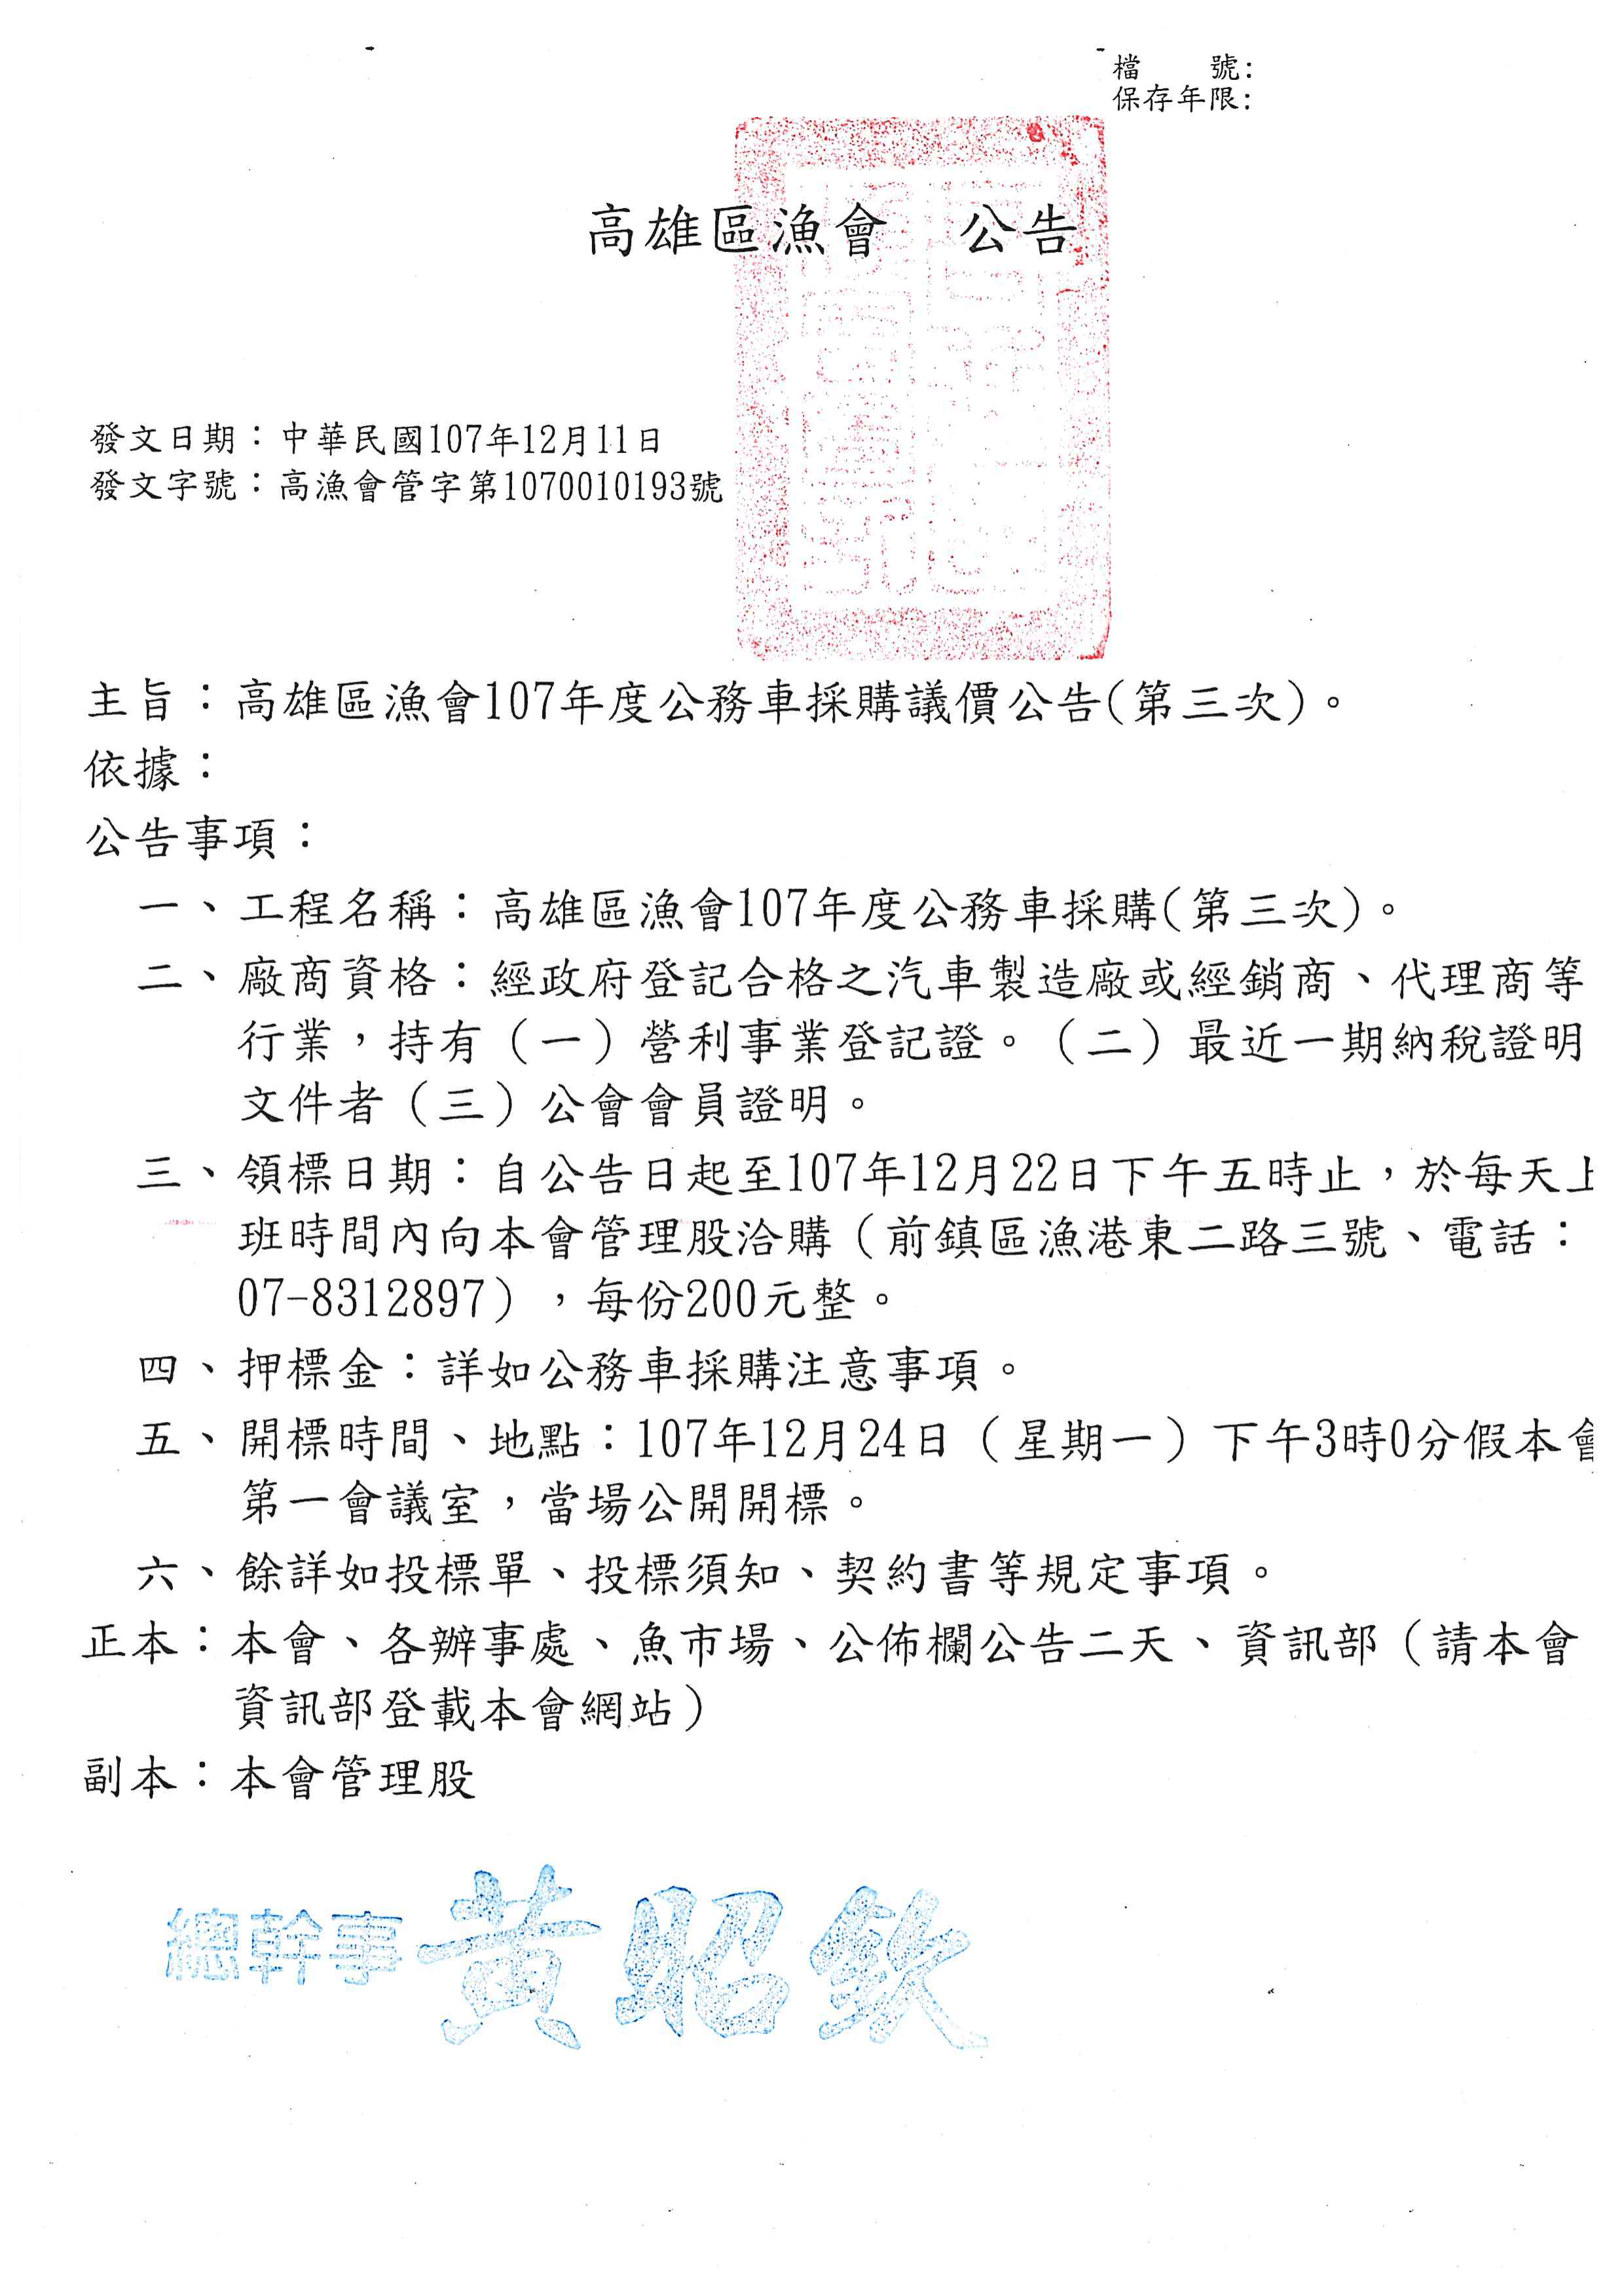 檔　　號:
保存年限:
高雄區漁會　公告
發文日期：中華民國107年12月11日
發文字號：高漁會管字第1070010193號
主旨：高雄區漁會107年度公務車採購議價公告(第三次)。
依據：
公告事項：
一、工程名稱：高雄區漁會107年度公務車採購(第三次)。
二、廠商資格：經政府登記合格之汽車製造廠或經銷商、代理商等
行業，持有（一）營利事業登記證。（二）最近一期納稅證明
文件者（三）公會會員證明。
三、領標日期：自公告日起至107年12月22日下午五時止，於每天上
班時間內向本會管理股洽購（前鎮區漁港東二路三號、電話：
07-8312897），每份200元整。
四、押標金：詳如公務車採購注意事項。
五、開標時間、地點：107年12月24日（星期一）下午3時0分假本會
第一會議室，當場公開開標。
六、餘詳如投標單、投標須知、契約書等規定事項。
正本：本會、各辦事處、魚市場、公佈欄公告二天、資訊部（請本會
資訊部登載本會網站）
副本：本會管理股
總幹事 黃昭欽